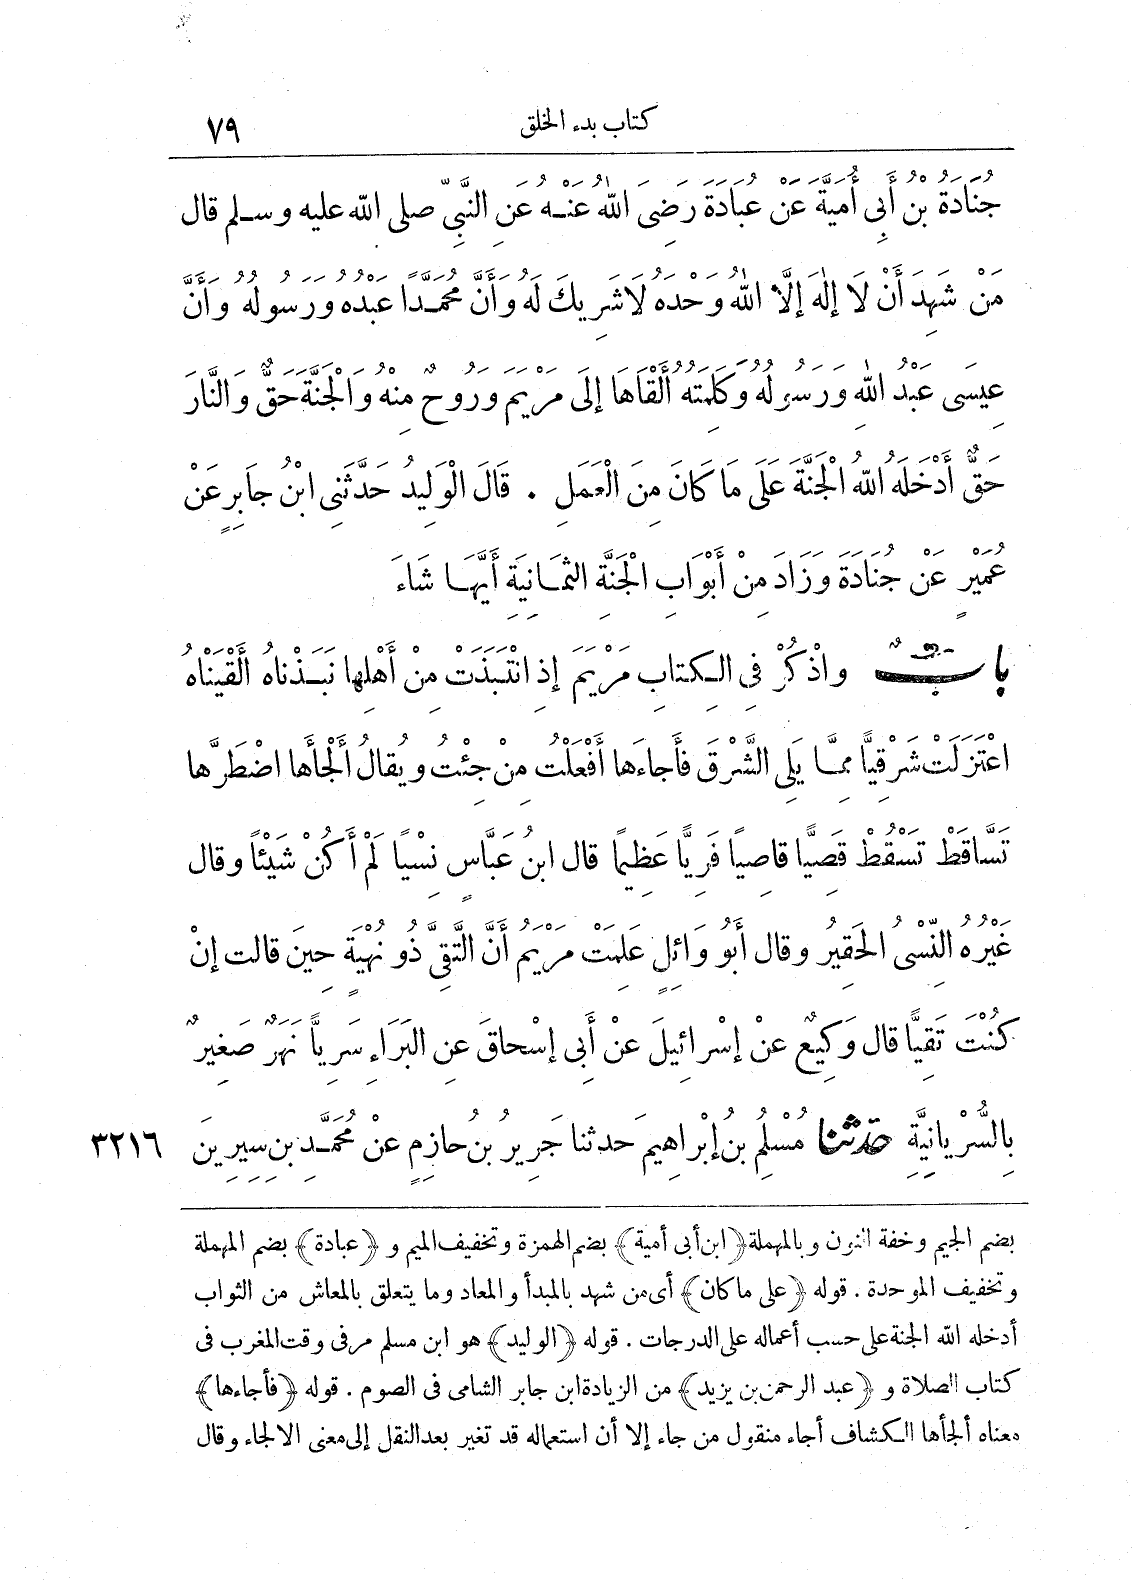 ٧٩ كتاب بدء الخلق
جُنَادَةُ بْنُ أَبِي أُمَيَّةَ عَنْ عُبَادَةَ رَضِىَ اللهُ عَنْهُ عَنِ النَّبِىِّ صلى الله عليه وسلم قال
مَنْ شَهِدَ أَنْ لَا إِلٰهَ إِلَّا اللهُ وَحْدَهُ لَا شَرِيكَ لَهُ وَأَنَّ مُحَمَّدًا عَبْدُهُ وَرَسُولُهُ وَأَنَّ
عِيسَى عَبْدُ اللهِ وَرَسُولُهُ وَكَلِمَتُهُ أَلْقَاهَا إِلَى مَرْيَمَ وَرُوحٌ مِنْهُ وَالْجَنَّةَ حَقٌّ وَالنَّارَ
حَقٌّ أَدْخَلَهُ اللهُ الْجَنَّةَ عَلَى مَا كَانَ مِنَ الْعَمَلِ . قَالَ الْوَلِيدُ حَدَّثَنِى ابْنُ جَابِرٍ عَنْ
عُمَيْرٍ عَنْ جُنَادَةَ وَزَادَ مِنْ أَبْوَابِ الْجَنَّةِ الثَّمَانِيَةِ أَيَّهَا شَاءَ
بابٌ واذْكُرْ فِى الكِتابِ مَرْيَمَ إِذِ انْتَبَذَتْ مِنْ أَهْلِها نَبَذْناهُ أَلْقَيْنَاهُ
اعْتَزَلَتْ شَرْقِيًّا مِمَّا يَلِى الشَّرْقَ فَأَجاءَها أَفْعَلْتُ مِنْ جِئْتُ ويُقالُ أَلْجَأَها اضْطَرَّها
تَسَّاقَطْ تَسْقُطْ قَصِيًّا قاصِيًا فَرِيًّا عَظِيمًا قال ابنُ عَبَّاسٍ نِسْيًا لَمْ أَكُنْ شَيْئًا وقال
غَيْرُهُ النِّسْىُ الحَقِيرُ وقال أَبُو وَائِلٍ عَلِمَتْ مَرْيَمُ أَنَّ التَّقِىَّ ذُو نُهْيَةٍ حِينَ قالت إنْ
كُنْتَ تَقِيًّا قال وَكِيعٌ عنْ إسْرائِيلَ عنْ أَبِى إسْحاقَ عنِ البَرَاءِ سَرِيًّا نَهَرٌ صَغِيرٌ
بِالسُّرْيانِيَّةِ حدثنا مُسْلِمُ بنُ إِبْراهِيمَ حدثنا جَرِيرُ بنُ حازِمٍ عنْ مُحَمَّدِ بنِ سِيرِينَ ٣٢١٦
بضم الجيم وخفة النون وبالمهملة ﴿ابن أبى أمية﴾ بضم الهمزة وتخفيف الميم و ﴿عبادة﴾ بضم المهملة
وتخفيف الموحدة . قوله ﴿على ما كان﴾ أى من شهد بالمبدأ والمعاد وما يتعلق بالمعاش من الثواب
أدخله الله الجنة على حسب أعماله على الدرجات . قوله ﴿الوليد﴾ هو ابن مسلم مر فى وقت المغرب فى
كتاب الصلاة و ﴿عبد الرحمن بن يزيد﴾ من الزيادة ابن جابر الشامى فى الصوم . قوله ﴿فأجاءها﴾
معناه ألجأها الكشاف أجاء منقول من جاء إلا أن استعماله قد تغير بعد النقل إلى معنى الالجاء وقال